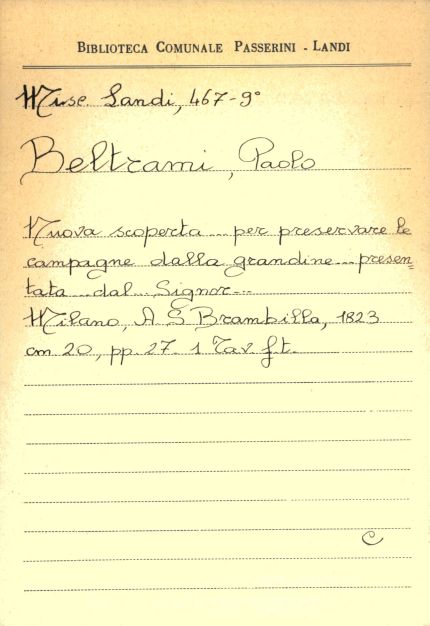 BIBLIOTECA COMUNALE PASSERINI - LANDI
Misc. Landi, 467-9°
Beltrami, Paolo
Nuova scoperta... per preservare le
campagne dalla grandine... presen=
tata... dal... Signor...
Milano, A S Brambilla, 1823
cm 20, pp. 27. 1 Tav f.t.
C